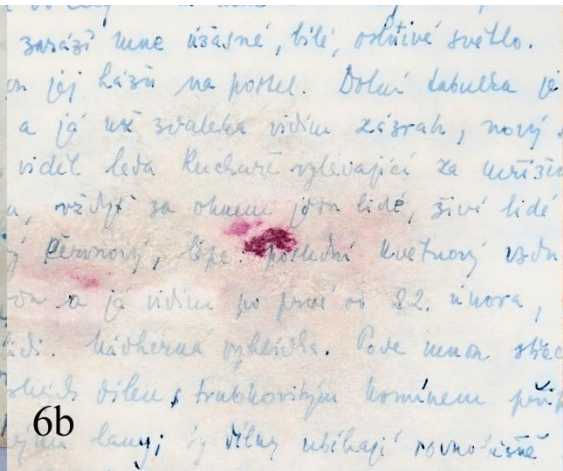 zaráží mne úžasné, bílé, oslnivé světlo.
jej házím na postel. Dolní tabulka je
a já už zdaleka vidím zázrak, nový
viděl leda kuchaře vylévající za
, vždyť za oknem jsou lidé, živí lidé
červnový, lépe: poslední květnový
a já vidím po prvé od 22. února,
lidi. Nádherná vyhlídka. Pode mnou
dílen s trubkovitým komínem
lany; ty dílny ubíhají rovnoběžně
6b